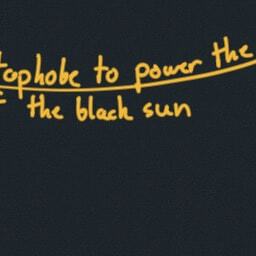 tophobe to power the
the black sun